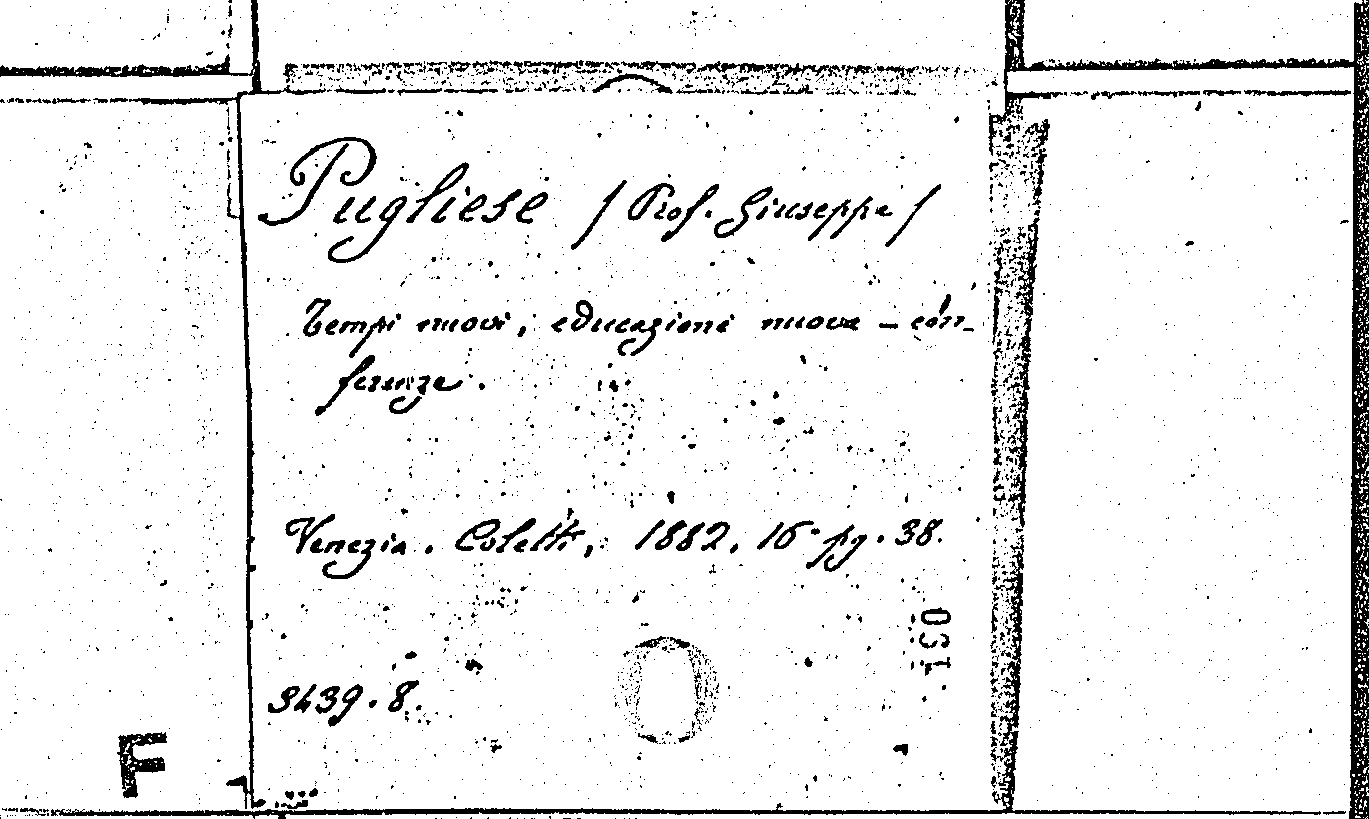 Pugliese / Prof. Giuseppe /
Tempi nuovi, educazione nuova - con-
ferenze.
Venezia. Coletti, 1882. 16° pg. 38.
031
3439.8.
F